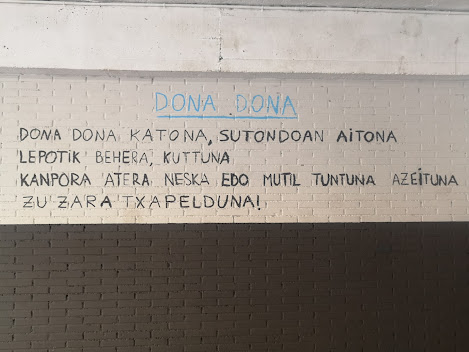 DONA DONA
DONA DONA KATONA, SUTONDOAN AITONA
LEPOTIK BEHERA, KUTTUNA
KANPORA ATERA NESKA EDO MUTIL TUNTUNA AZEITUNA
ZU ZARA TXAPELDUNA!